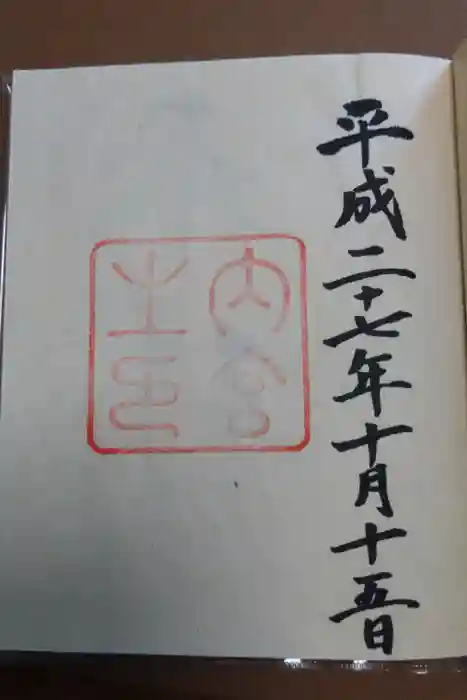 平成二十七年十月十五日
内宮
之印